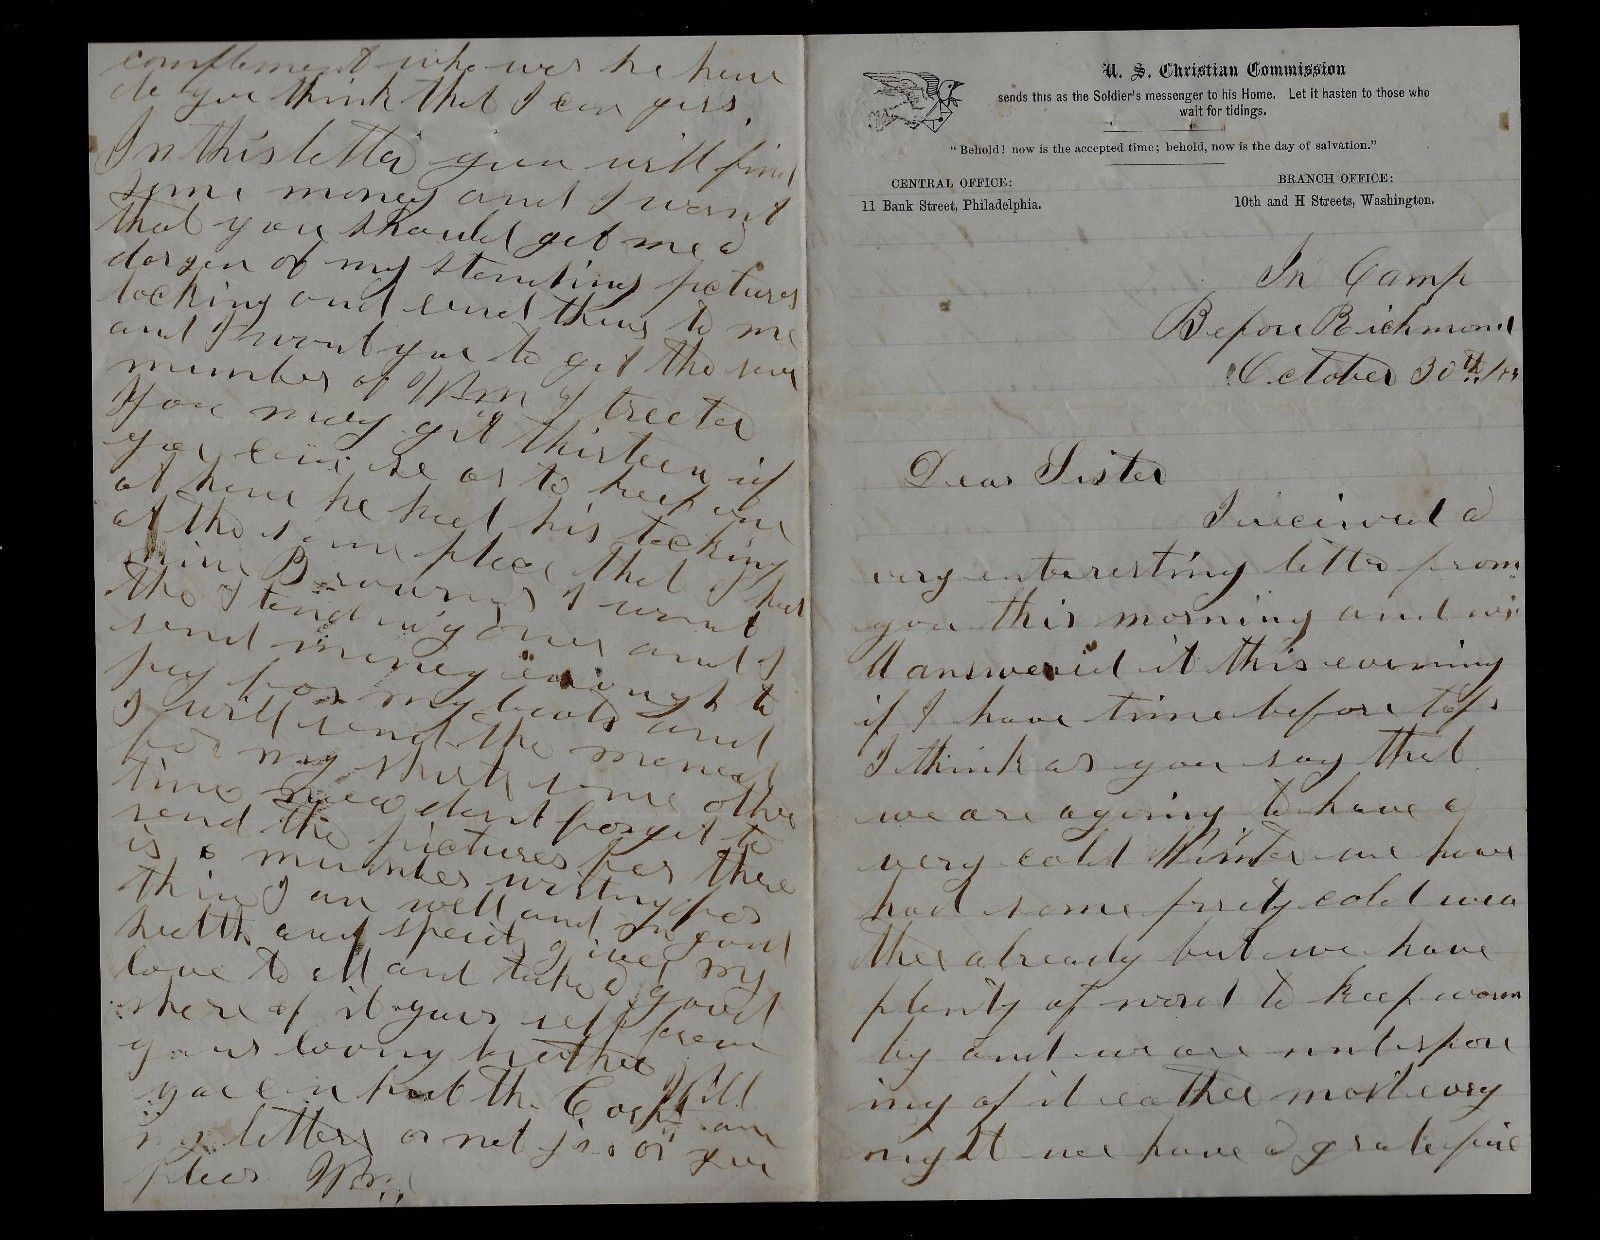 U. S. Christian Commission
sends this as the Soldier's messenger to his Home. Let it hasten to those who
wait for tidings.
"Behold! now is the accepted time; behold, now is the day of salvation."
CENTRAL OFFICE:
11 Bank Street, Philadelphia.
BRANCH OFFICE:
10th and H Streets, Washington.
In Camp
Before Richmond
October 30th
Dear Sister
I received a
very enteresting letter from
you this morning and wi
ll answered it this evening
if I have time before taps
I think as you say that
we are agoing to have a
very cold Winter we have
had some prity cold wea
ther already but we have
plenty of wood to keep worm
by and we are not spare
ing of it eather most evry
night we have a grate fire
complement who was he here
do you think that I can gess
In this letter you will find
some money and I want
that you should get me a
dozen of my standing pictures
tacking and send them to me
and I want you to get the same
number of Wm
You may git thirteen if
you like so as to keep one
at home he had his tacking
at the same place that I had
mine Browns I want
the standing ones and I
send money enough to
pay for my boots and
I will send the money
for my shirts some other
time now dont forget to
send the pictures for there
is a number writing for
them I am well and in good
helth and spirits give my
love to all and take a good
share of it your self from
your loving brother Will
you can hand the
my letters or not just as you
pleas Wm